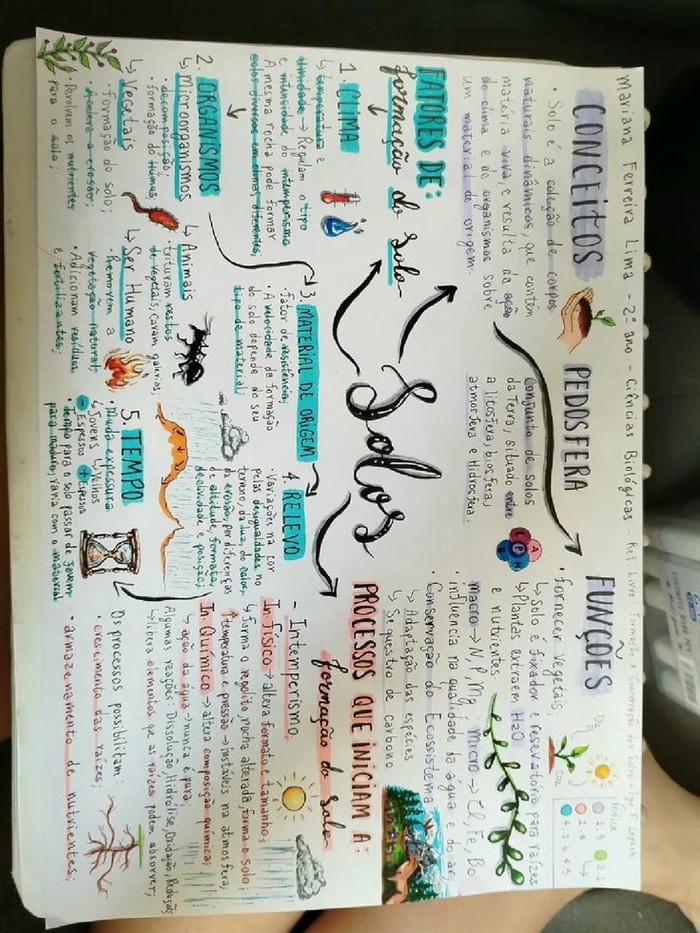 Mariana Ferreira Lima - 2º ano - Ciências Biológicas - Ref. Livro: Formação e Conservação dos Solos - Igo F. Lepsch
CONCEITOS
• Solo é a coleção de corpos
naturais dinâmicos, que contém
matéria viva, e resulta da ação
do clima e de organismos sobre
um material de origem.
PEDOSFERA
Conjunto de solos
da Terra, situado entre
a litosfera, biosfera,
atmosfera e Hidrosfera.
A
L
P
H
B
FUNÇÕES
• fornecer vegetais:
↳ Solo é fixador e reservatório para raízes
↳ Plantas extraem H2O
e nutrientes
Macro → N, P, Mg; micro → Cl, Fe, Bo
• influencia na qualidade da água e do ar;
Conservação do Ecossistema
↳ Adaptação das espécies
↳ Sequestro de carbono
O2
CO2
Índice
Solos
FATORES DE:
formação do solo
1. CLIMA
↳ temperatura e
umidade → Regulam o tipo
e intensidade do intemperismo
A mesma rocha pode formar
solos diversos em climas diferentes;
2. ORGANISMOS
↳ Microorganismos
• decomposição;
• formação do Húmus
↳ Vegetais
• formação do solo;
• Devolvem os nutrientes
para o solo;
↳ Animais
• trituram restos
de vegetais, cavam galerias;
↳ Ser Humano
• Removem a
vegetação natural;
• Adicionam resíduos
e fertilizantes;
3. MATERIAL DE ORIGEM
• fator de resistência;
• A velocidade de formação
do solo depende do seu
tipo de material;
4. RELEVO
• Variações na cor
pelas desigualdades no
terreno, da luz, do calor,
da erosão, por diferenças
de altitude, formato,
declividade e posição;
5. TEMPO
• Muda espessura
↳ Jovens ↳ Velhos
- Espesso + Espesso
• tempo para o solo passar de jovem
para maduro, varia com o material
PROCESSOS QUE INICIAM A:
formação do solo
- Intemperismo,
In. físico → altera formato e tamanho;
↳ forma o regolito, rocha alterada, forma o solo;
↑ temperatura e pressão → instáveis na atmosfera;
In. Químico → altera composição química;
↳ ação da água → nunca é pura;
Algumas reações: Dissolução, Hidrólise, Oxidação, Redução;
↳ libera elementos que as raízes podem absorver;
Os processos possibilitam:
crescimento das raízes;
• armazenamento de nutrientes,